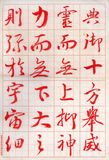 典御十方舉威
靈而無上抑神
力而無下大之
則彌於宇宙細